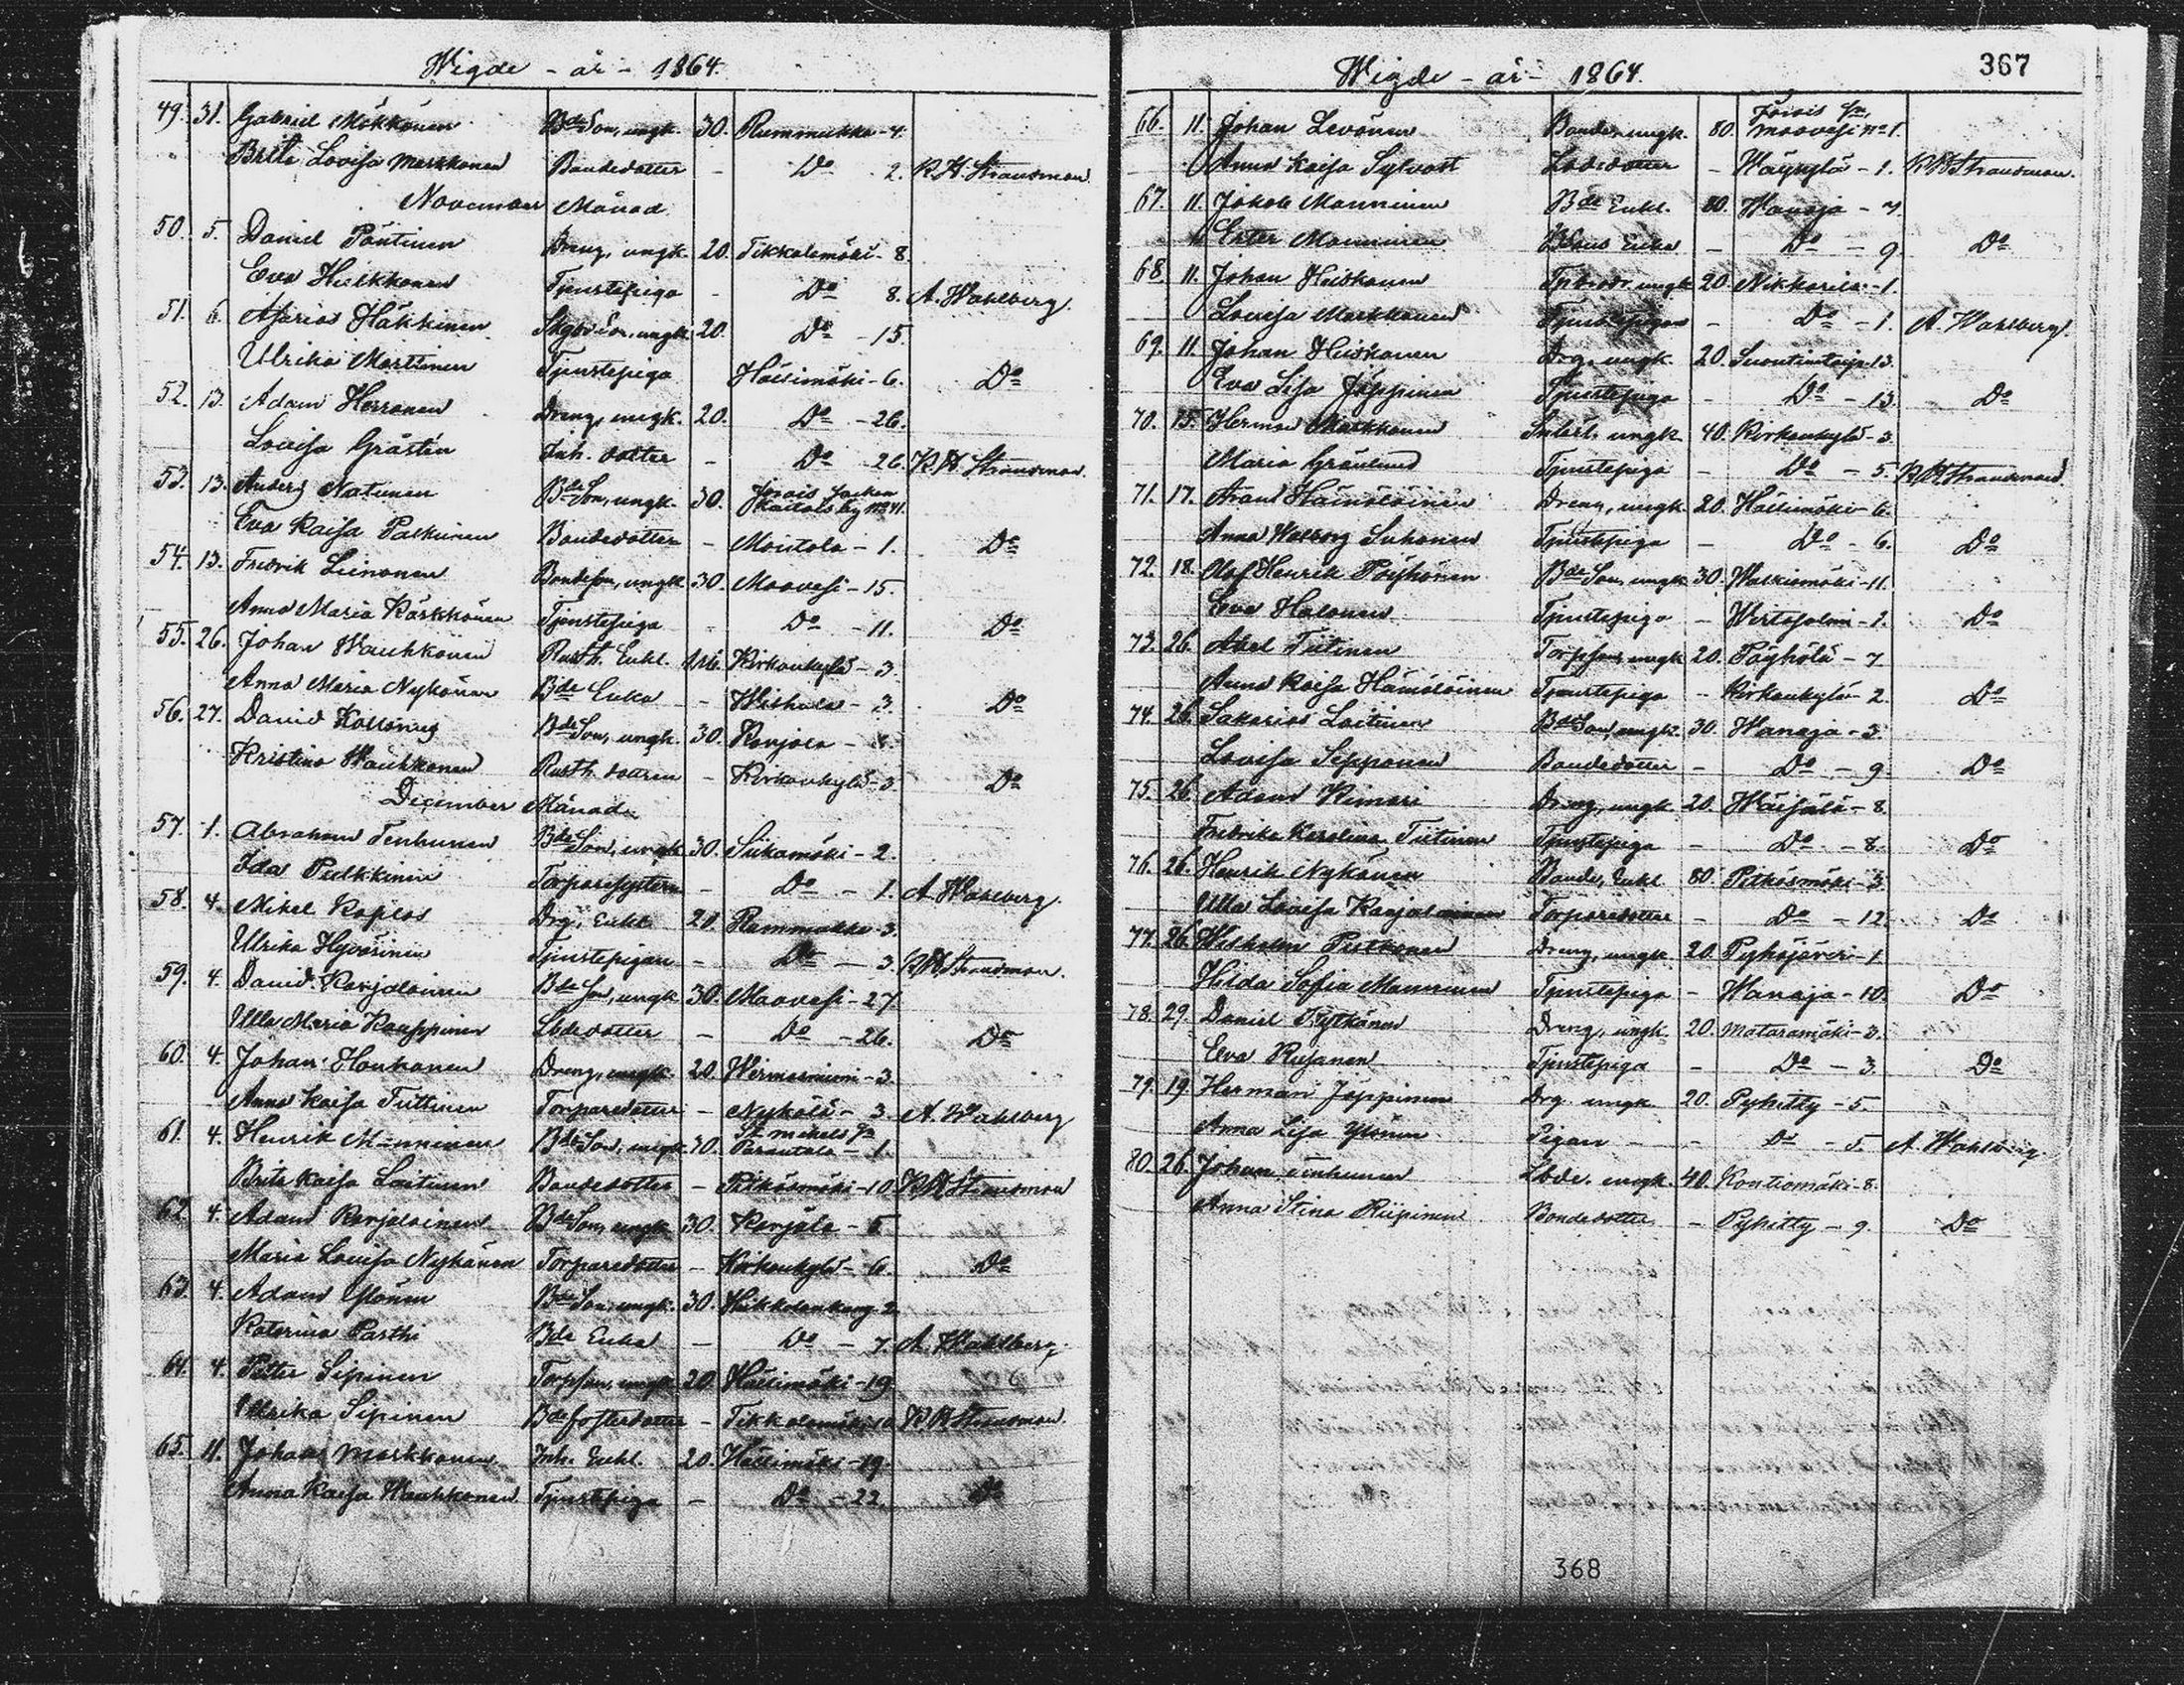 Wigde - år - 1864.
49. 31. Gabriel Mökkönen Bde Son, ungk. 30. Rummukka - 4.
Brita Lovisa Markkanen Bondedotter - Do 2. K. H. Strandman.
November Månad.
50. 5. Daniel Pöntinen Dreng, ungk. 20. Tikkalamäki - 8.
Eva Hulkkonen Tjenstepiga - Do 8. A. Wahlberg.
51. 6. Asarias Häkkinen Son, ungk. 20. Do - 15
Ulrika Marttinen Tjenstepiga Hällimäki - 6. Do
52. 13. Adam Herranen Dreng, ungk. 20. Do - 26.
Lovisa Gråsten Inh. dotter - Do 26. K. H. Strandman.
53. 13. Anders Natunen Bde Son, ungk. 30. Jorois Socken
Eva Kaisa Palkinen Bondedotter - Montola - 1. Do
54. 13. Fredrik Leinonen Bondeson, ungk. 30. Maavesi - 15.
Anna Maria Kärkkönen Tjenstepiga - Do - 11. Do
55. 26. Johan Wauhkonen Rusth. Enkl. Kirkonkylä - 3.
Anna Maria Nykänen Bde Enka - 3. Do
56. 27. David Bde Son, ungk. 30. Karjala
Kristina Wauhkonen Rusth. dottren - Kirkonkylä - 3. Do
December Månad
57. 1. Abraham Tenhunen Bde Son, ungk. 30. Siikamäki - 2.
Ida Pulkkinen Torparesystern - Do - 1. A. Wahlberg.
58. 4. Mikel Kaplas Drg, Enkl. 20. Rummukka - 3.
Ulrika Hyvärinen Tjenstepigan - Do - 3. K H Strandman.
59. 4. David Karjalainen Bde Son, ungk. 30. Maavesi - 27.
Ulla Maria Kauppinen Lbdedotter - Do - 26. Do
60. 4. Johan Houhanen Dreng, ungk. 20. - 3.
Anna Kaisa Tuttinen Torparedotter - Nykälä - 3. A. Wahlberg
61. 4. Henrik Manninen Bde Son, ungk. 30. St Mikels Sn - 1.
Brita Kaisa Laitinen Bondedotter - Pitkäsmäki - 10 K H Strandman
62. 4. Adam Karjalainen Bde Son, ungk. 30. Karjala - 5
Maria Lovisa Nykänen Torparedotter - Kirkonkylä - 6. Do
63. 4. Adam Ylönen Bde Son, ungk. 30. 2
Katarina Parthi Bde Enka - Do - 7. A. Wahlberg.
64. 4. Petter Sipinen Torpson, ungk. 20. Hällimäki - 19
Ulrika Sipinen Bde fosterdotter - Tikkalamäki 10 K H Strandman.
65. 11. Johan Markkanen Inh. Enkl. 20. Hällimäki - 19.
Anna Kaisa Wauhkonen Tjenstepiga - Do - 22. Do
Wigde - år - 1864.
367
66. 11. Johan Levänen Bonde, ungk. 80. Jorois Sn, Maavesi No 1.
Anna Kaisa Sylvast Lbdedotter - Häyrylä - 1. K H Strandman.
67. 11. Jakob Manninen Bde Enkl. 80. Wanaja - 7
Ester Manninen Enka - Do - 9 Do
68. 11. Johan Heiskanen ungk 20. Nikkarila - 1.
Lovisa Markkanen Tjenstepigan - Do - 1. A. Wahlberg.
69. 11. Johan Heiskanen Drg, ungk. 20. Suontientaipa 13.
Eva Lisa Jäppinen Tjenstepiga - Do - 13. Do
70. 15. Herman Markkanen ungk 40. Kirkonkylä - 3
Maria Grönlund Tjenstepiga - Do - 5. K H Strandman
71. 17. Frans Hämäläinen Dreng, ungk. 20. Hällimäki - 6.
Anna Walborg Suhonen Tjenstepiga - Do - 6. Do
72. 18. Olof Henrik Pöyhönen Bde Son, ungk. 30. Walkiamäki - 11.
Eva Halonen Tjenstepiga - Wirtasalmi - 1. Do
73. 26. Abel Tiitinen Torpson, ungk 20. Pöyhölä - 7
Anna Kaisa Hämäläinen Tjenstepiga - Kirkonkylä 2. Do
74. 26. Sakarias Laitinen Bde Son, ungk. 30. Wanaja - 3.
Lovisa Sepponen Bondedotter - Do - 9 Do
75. 26. Adam Kimari Dreng, ungk. 20. Häyälä - 8.
Fredrika Karolina Tiitinen Tjenstepiga - Do - 8. Do
76. 26. Henrik Nykänen Bonde, Enkl 80. Pitkäsmäki - 3
Ulla Lovisa Karjalainen Torparedotter - Do - 12. Do
77. 26. Wilhelm Dreng, ungk. 20. Pyhäjärvi - 1
Hilda Sofia Manninen Tjenstepiga - Wanaja - 10. Do
78. 29. Daniel Pytkönen Dreng, ungk. 20. Mataramäki - 3.
Eva Rusanen Tjenstepiga - Do - 3. Do
79. 19. Herman Jäppinen Drg. ungk. 20. Pyhitty - 5.
Anna Lisa Ylönen Pigan - - Do - 5. A. Wahlberg.
80. 26. Johan Tenhunen Lbde. ungk. 40. Kontiomäki - 8.
Anna Stina Riipinen Bondedotter - Pyhitty - 9. Do
368